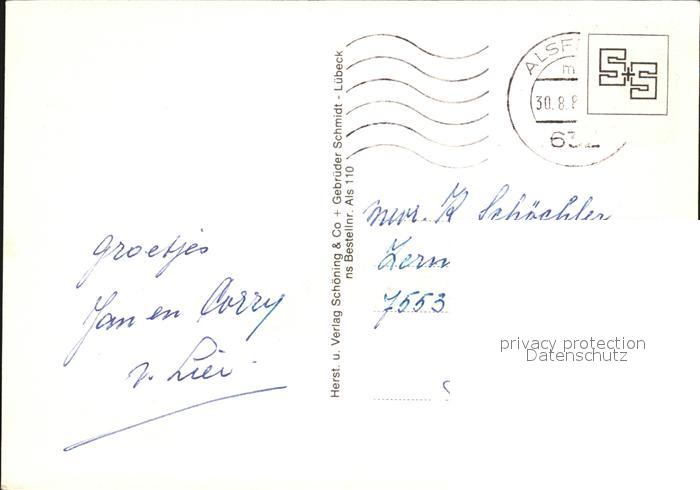 Groetjes
Jan en Corry
v. Lier
Herst. u. Verlag Schöning & Co + Gebrüder Schmidt - Lübeck
ns Bestellnr. Als 110
ALSF
m
30.8.8
S+S
mevr. K Schöchler
Zern
7553
privacy protection
Datenschutz